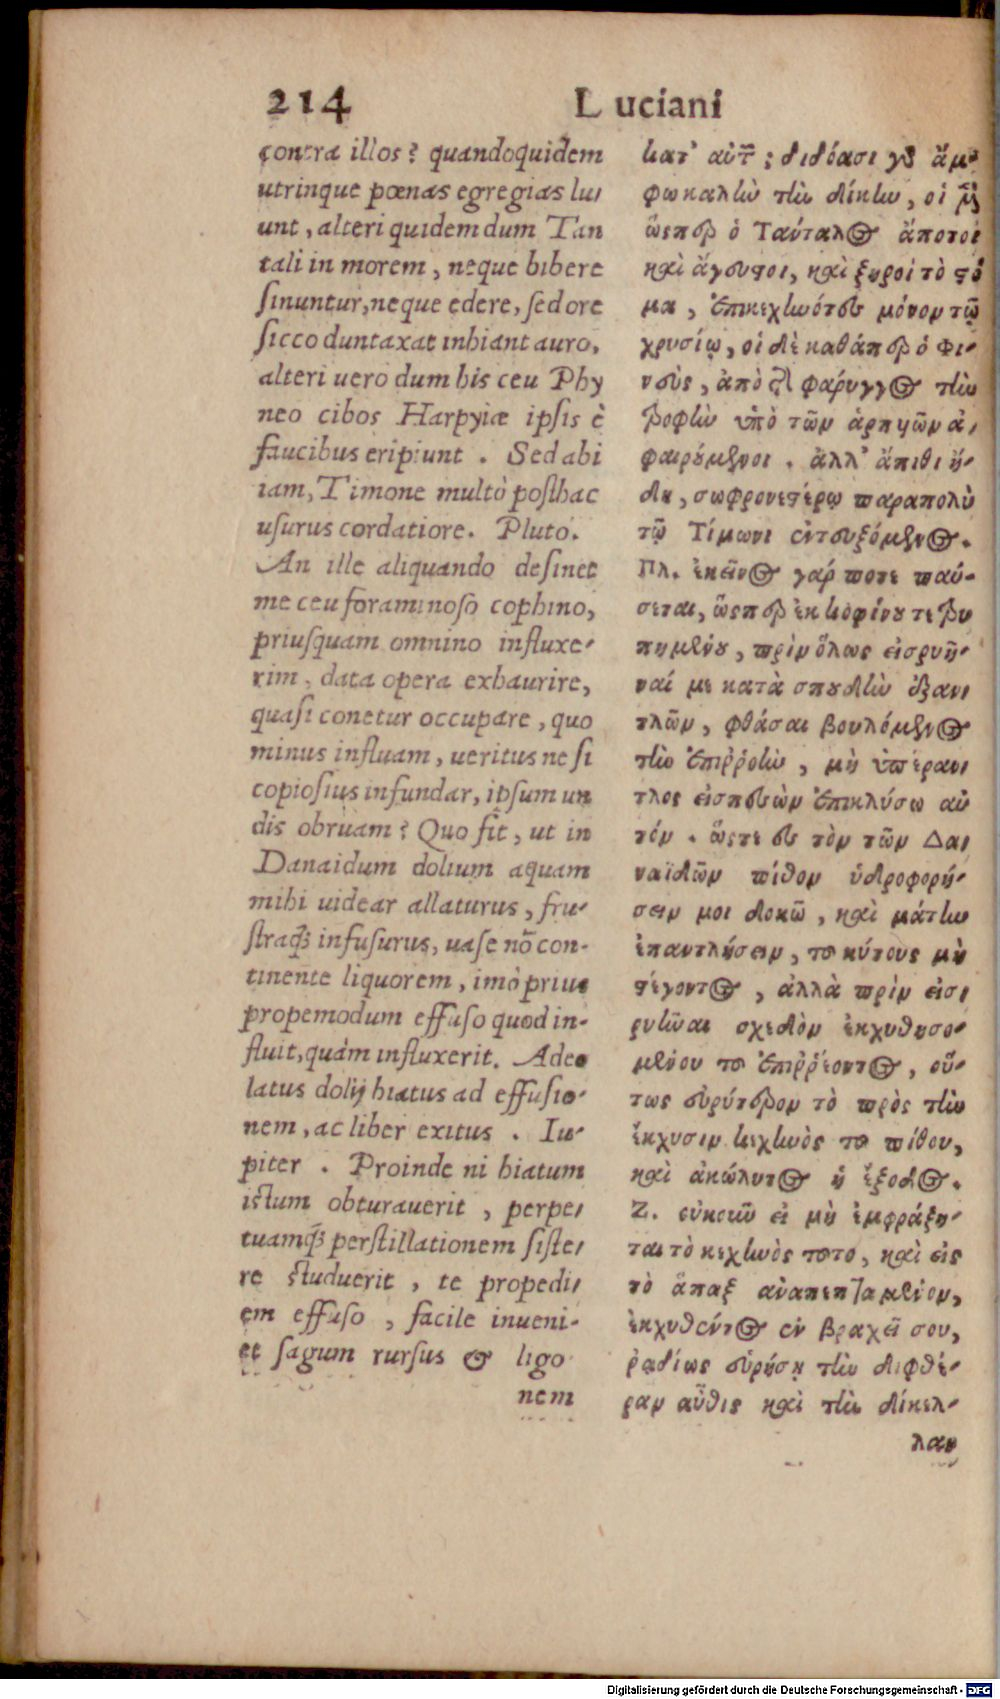 214 Luciani
contra illos? quandoquidem
utrinque pœnas egregias lu,
unt, alteri quidem dum Tan
tali in morem, neque bibere
ſinuntur, neque edere, ſed ore
ſicco duntaxat inhiant auro,
alteri uero dum his ceu Phy
neo cibos Harpyiæ ipſis è
faucibus eripiunt . Sed abi
iam, Timone multò poſthac
uſurus cordatiore. Pluto.
An ille aliquando deſinet
me ceu foraminoſo cophino,
priuſquam omnino influxe-
rim, data opera exhaurire,
quaſi conetur occupare, quo
minus influam, ueritus ne ſi
copioſius infundar, ipſum un
dis obruam? Quo fit, ut in
Danaidum dolium aquam
mihi uidear allaturus, fru-
ſtraq́; infuſurus, uaſe nō con-
tinente liquorem, imò prius
propemodum effuſo quod in-
fluit, quàm influxerit. Adeo
latus dolij hiatus ad effuſio-
nem, ac liber exitus . Iu-
piter . Proinde ni hiatum
iſtum obturauerit , perpe,
tuamq́; perſtillationem ſiſte,
re ſtuduerit , te propedi,
em effuſo , facile inueni-
et ſagum rurſus & ligo
nem
κατ' αὐτ̃ ; διδόασι γὸ ἄμ-
φω καλὴν τὴν δίκην, οἱ μὲν
ὥσπερ ὁ Τάνταλος ἄποτοι
καὶ ἄγευστοι, καὶ ξηροὶ τὸ στό
μα , ἐπικεχηνότες μόνον τῷ
χρυσίῳ, οἱ δὲ καθάπερ ὁ Φι-
νεὺς, ἀπὸ τῆς φάρυγγος τὴν
τροφὴν ὑπὸ τῶν ἁρπυιῶν ἀ,
φαιρούμενοι . ἀλλ' ἄπιθι ἤ-
δη, σωφρονεστέρῳ παραπολὺ
τῷ Τίμωνι ἐντευξόμενος.
Πλ. ἐκεῖνος γάρ ποτε παύ-
σεται, ὥσπερ ἐκ κοφίνου τετρυ
πημένου, πρὶν ὅλως εἰσρυῆ-
ναί με κατὰ σπουδὴν ἐξαν,
τλῶν, φθάσαι βουλόμενος
τὴν ἐπιῤῥοὴν , μὴ ὑπέραν,
τλος εἰσπεσὼν ἐπικλύσω αὐ
τόν . ὥστε ἐς τὸν τῶν Δα,
ναΐδων πίθον ὑδροφορή-
σειν μοι δοκῶ, καὶ μάτην
ἐπαντλήσειν, τοῦ κύτους μὴ
στέγοντος , ἀλλὰ πρὶν εἰσ,
ρυῆναι σχεδὸν ἐκχυθησο-
μένου τοῦ ἐπιῤῥέοντος, οὕ-
τως εὐρύτερον τὸ πρὸς τὴν
ἔκχυσιν κεχηνὸς τοῦ πίθου,
καὶ ἀκώλυτος ἡ ἔξοδος.
Ζ. οὐκοῦν εἰ μὴ ἐμφράξη-
ται τὸ κεχηνὸς τοῦτο, καὶ εἰς
τὸ ἅπαξ ἀναπεπταμένον,
ἐκχυθέντος ἐν βραχεῖ σου,
ῥᾳδίως εὑρήσῃ τὴν διφθέ-
ραν αὖθις καὶ τὴν δίκελ-
λαν
Digitalisierung gefördert durch die Deutsche Forschungsgemeinschaft - DFG